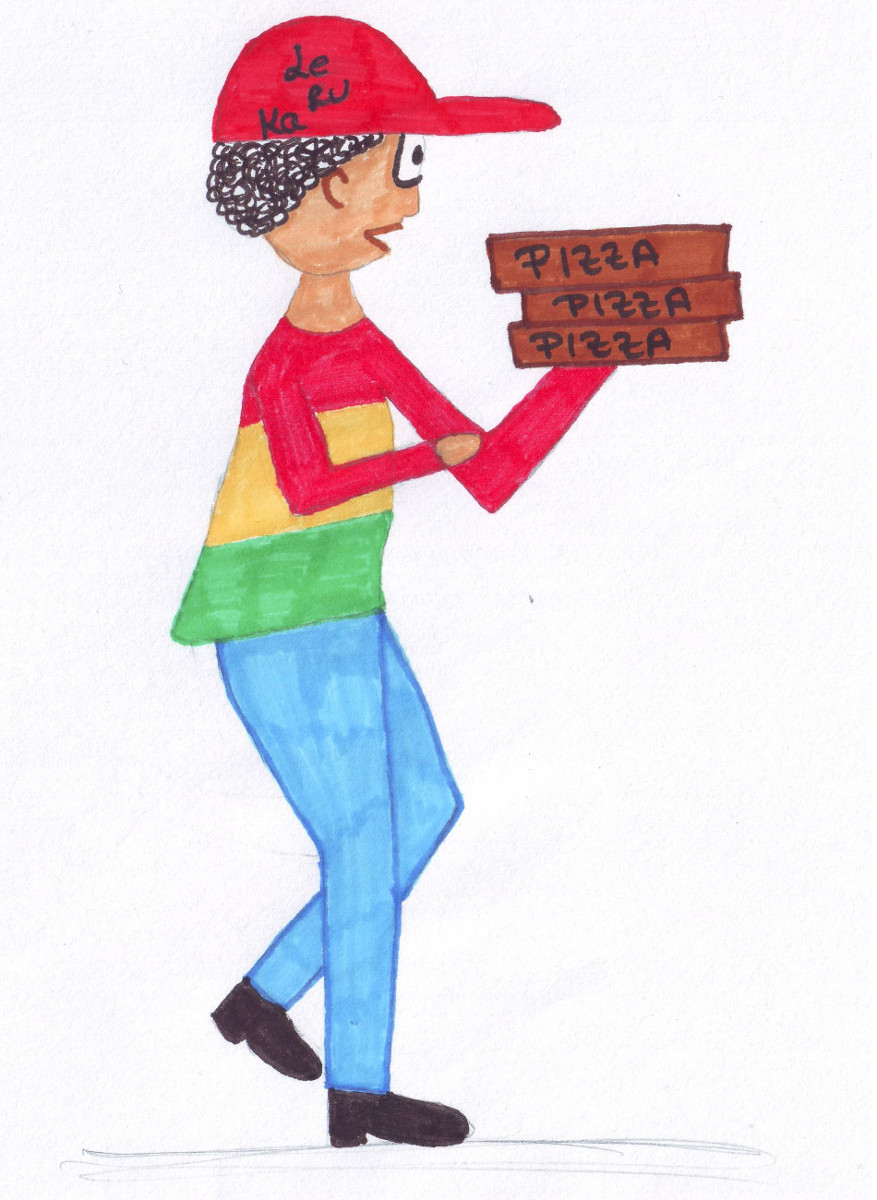 Le
RU
Ka
PIZZA
PIZZA
PIZZA